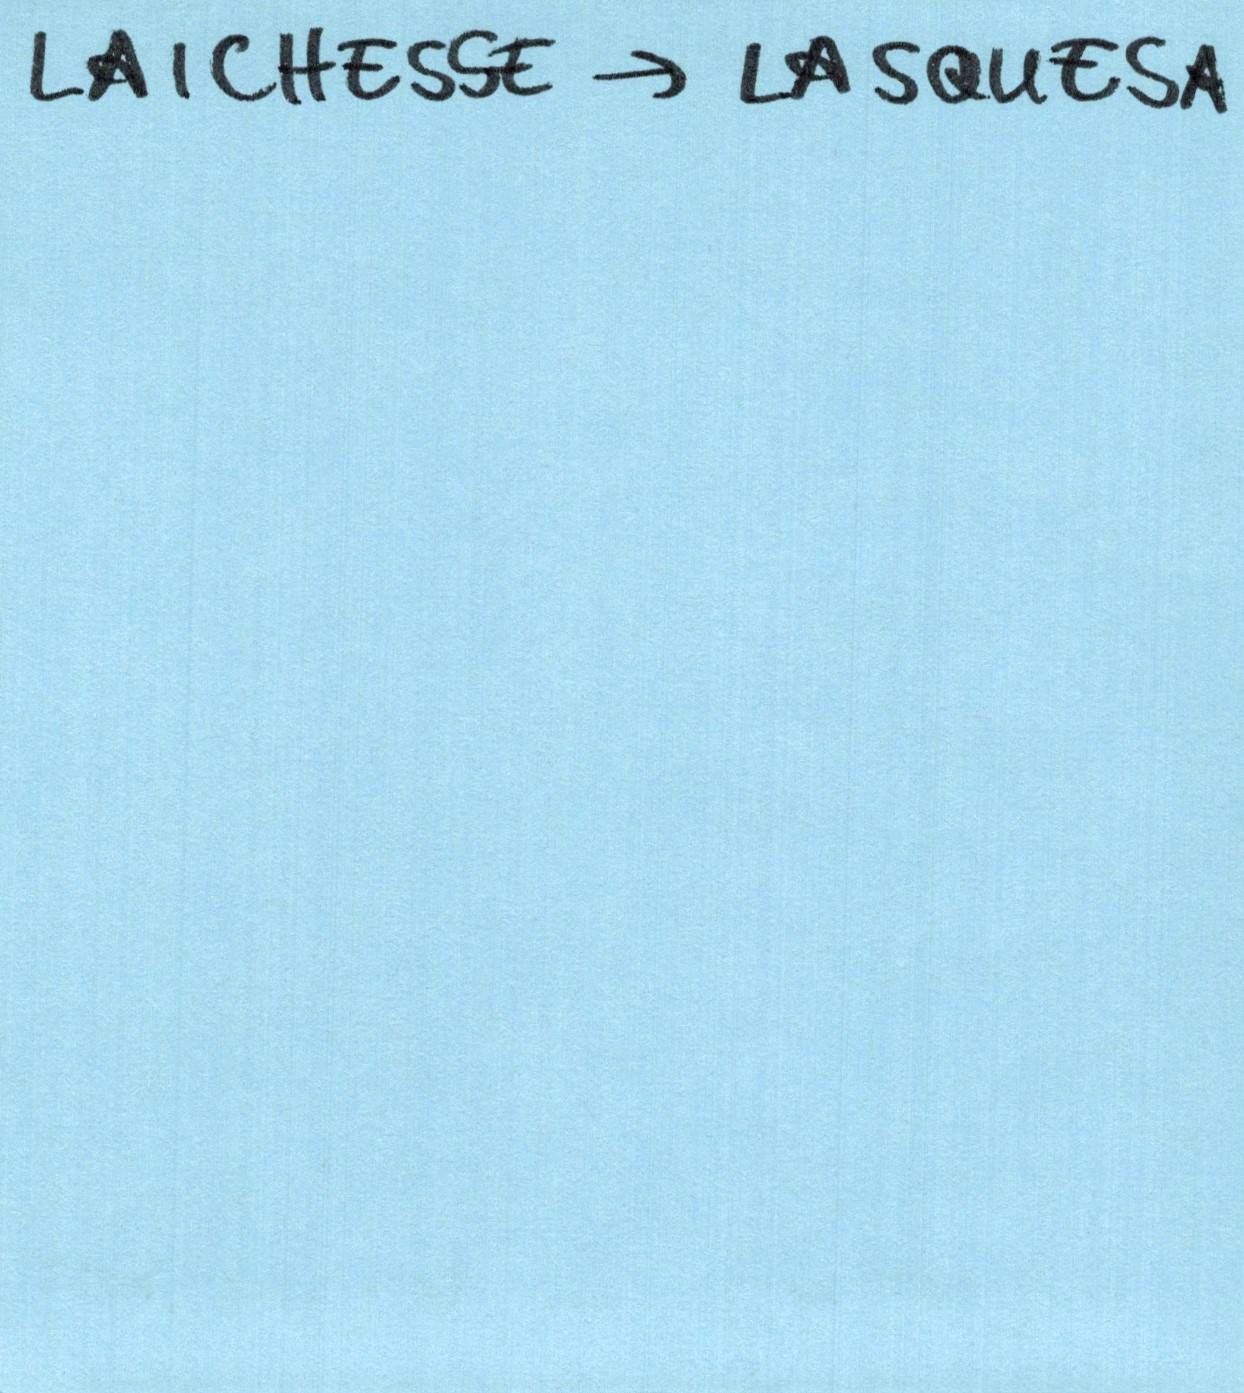 LAICHESSE → LASQUESA